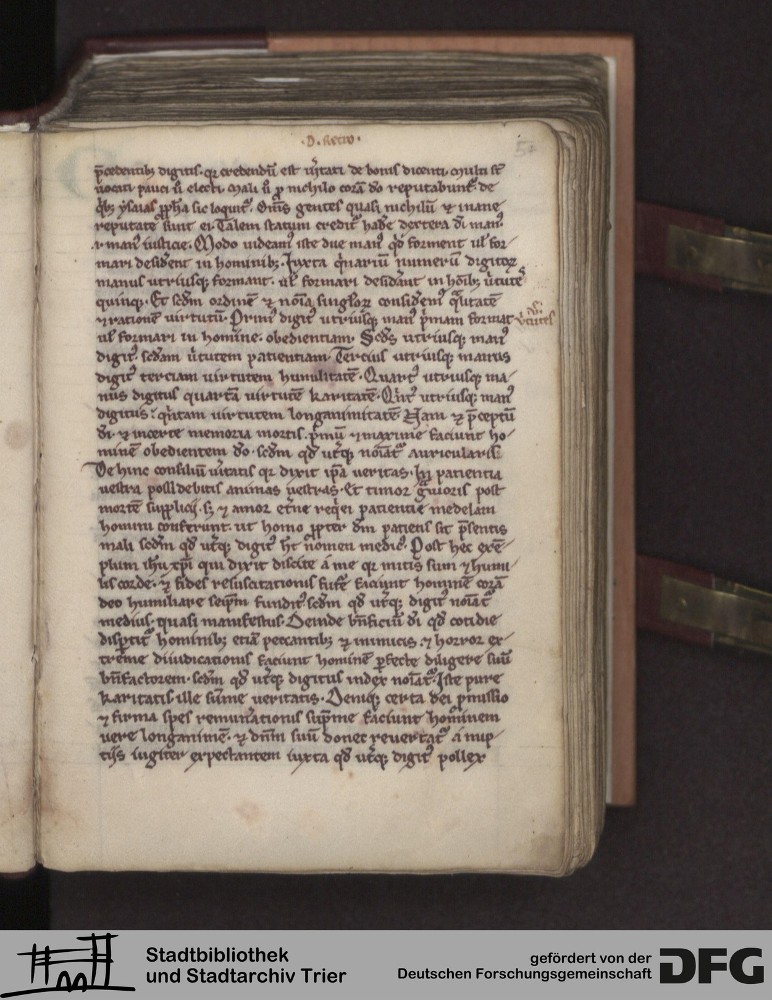 ·D· Recto·
p̄cedentib; digitis· qr credendū est ūitati de bonis dicenti· Multi st̄
uocati pauci ū electi· Mali ū p nichilo corā do reputabunt᷑ de
qb; ysaias ppħa sic loquit᷑· Om̄s gentes quasi nichilū ⁊ inane
reputate sunt ei· Talem statum credit᷑ habe dextera di man᷒·
⁊ man᷒ iusticie· Modo uideam᷒ iste due man᷒ qd forment ul᷒ for-
mari desidēt in hominib;· Iuxta q̄nariū numerū digitoꝝ
manus utriusq; formant· ul᷒ formari desidāt in hoīb; ūtute᷒
quinq;· Et scdm ordinē ⁊ noīa singloꝝ considem᷒ q̄litatē
⁊ rationē uirtutū· Prim᷒ digit᷒ utriusq; man᷒ p̄mam format ūtutes
ul᷒ formari in homine· obedientiam· Scds utriusq; man᷒
digit᷒· scdam ūtutem patientiam· Tercius utriusq; manus
digit᷒ terciam uirtutem humilitatē· Quart᷒ utriusq; ma-
nus digitus quartā uirtutē karitatē· Qnt᷒ utriusq; man᷒
digitus· qntam uirtutem longanimitatē· Nam ⁊ p̄ceptū
di· ⁊ incerte memoria mortis· p̄mū ⁊ maxime faciunt ho-
minē obedientem do· scdm qd utq; digit᷒ noīat᷑ auricularis·
De hinc consiliū ūitatis qr dixit ipā ueritas· In patientia
uestra possidebitis animas uestras· Et timor g̈uioris post
mortē supplicij· s; ⁊ amor et̄ne req̄ei patientie medelam
homini conferunt· ut homo ppter dm patiens sit p̄sentis
mali scdm qd utq; digit᷒ ht nomen medic᷒· Post hec exē-
plum ihu xpi qui dixit discite a me qr mitis sum ⁊ humi-
lis corde· ⁊ fides resuscitationis fut̄e faciunt hominē corā
deo humiliare seipm funditus scdm qd utq; digit᷒ noīat᷑
medius· quasi manifestus· Deinde bn̄ficiū di qd cotidie
disp̄tit᷑ hominib; etiā peccantib; ⁊ inimicis· ⁊ horror ex-
treme diiudicationis faciunt hominē pfecte diligere suū
bn̄factorem· scdm qd utq; digitus index noīat᷑· Iste pure
karitatis ille sūme ueritatis· Deniq; certa dei pmissio
⁊ firma spes remunationis sup̄me faciunt hominem
uere longanimē· ⁊ dnm suū donec reuertat᷑ a nup-
tijs iugiter expectantem iuxta qd utq; digit᷒ pollex
Stadtbibliothek
und Stadtarchiv Trier
gefördert von der
Deutschen Forschungsgemeinschaft
DFG